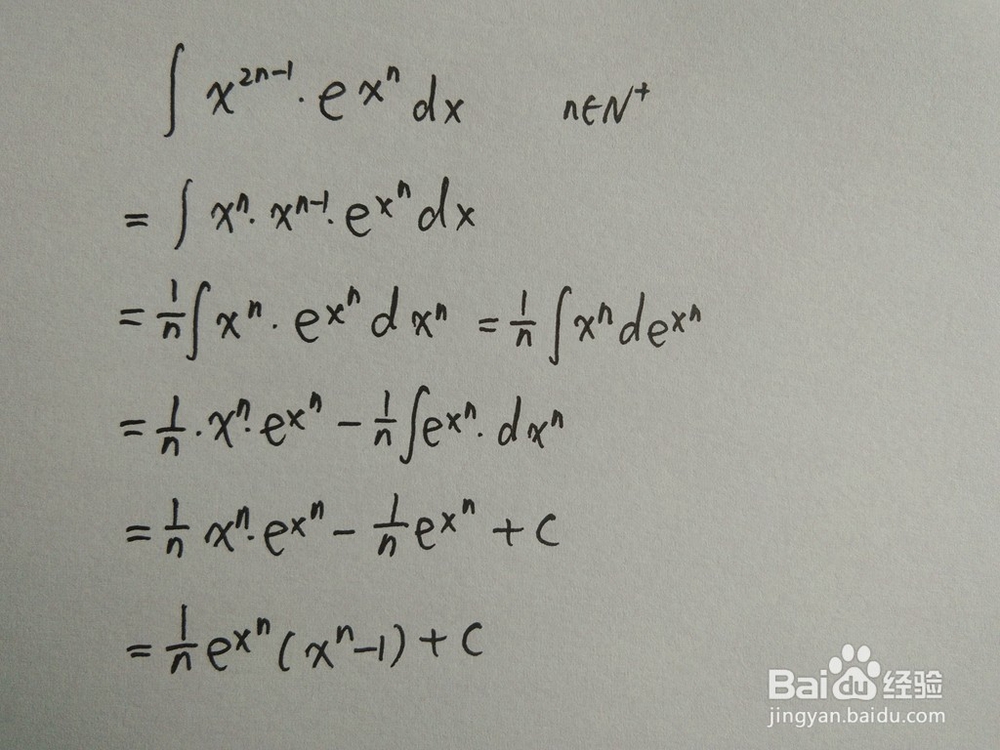 ∫ x^{2n-1} · e^{x^n} dx    n∈N^+
= ∫ x^n · x^{n-1} · e^{x^n} dx
= 1/n ∫ x^n · e^{x^n} d x^n = 1/n ∫ x^n d e^{x^n}
= 1/n · x^n · e^{x^n} - 1/n ∫ e^{x^n} · d x^n
= 1/n x^n · e^{x^n} - 1/n e^{x^n} + C
= 1/n e^{x^n} (x^n - 1) + C
Baidu 经验
jingyan.baidu.com